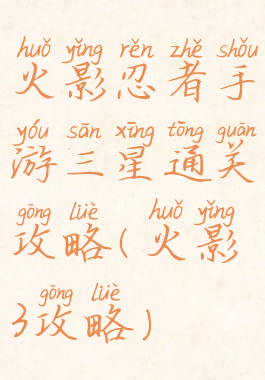 huǒ yǐng rěn zhě shǒu
火影忍者手
yóu sān xīng tōng guān
游三星通关
gōng lüè huǒ yǐng
攻略( 火影
gōng lüè
3攻略)